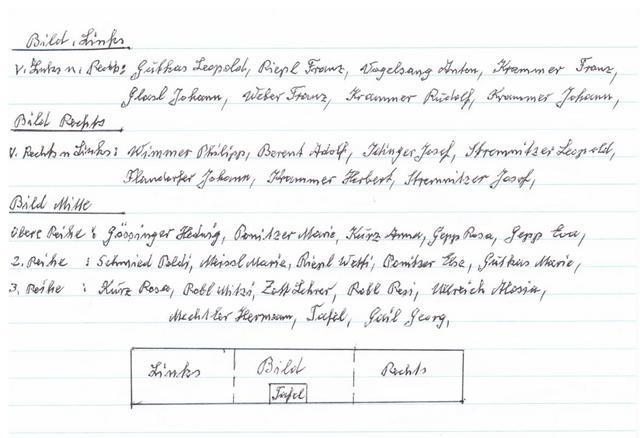 Bild Links
v. Links n. Rechts: Gutkas Leopold, Riepl Franz, Vogelsang Anton, Krammer Franz,
Glasl Johann, Weber Franz, Krammer Rudolf, Krammer Johann,
Bild Rechts
v. Rechts n Links: Wimmer Philipp, Berent Adolf, Idinger Josef, Stremnitzer Leopold,
Flandorfer Johann, Krammer Herbert, Stremnitzer Josef,
Bild Mitte
obere Reihe: Gössinger Hedwig, Donitzer Marie, Kurz Anna, Gepp Rosa, Gepp Eva,
2. Reihe : Schmied Poldi, Meissl Maria, Riepl Wetti, Donitzer Else, Gutkas Marie,
3. Reihe : Kurz Rosa, Robl Mitzi, Zott Lehrer, Robl Resi, Ullreich Aloisia,
Mechtler Hermann, Tafel, Gail Georg,
Links Bild Rechts
Tafel